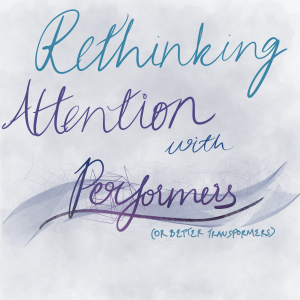 Rethinking
Attention
with
Performers
(OR BETTER TRANSFORMERS)